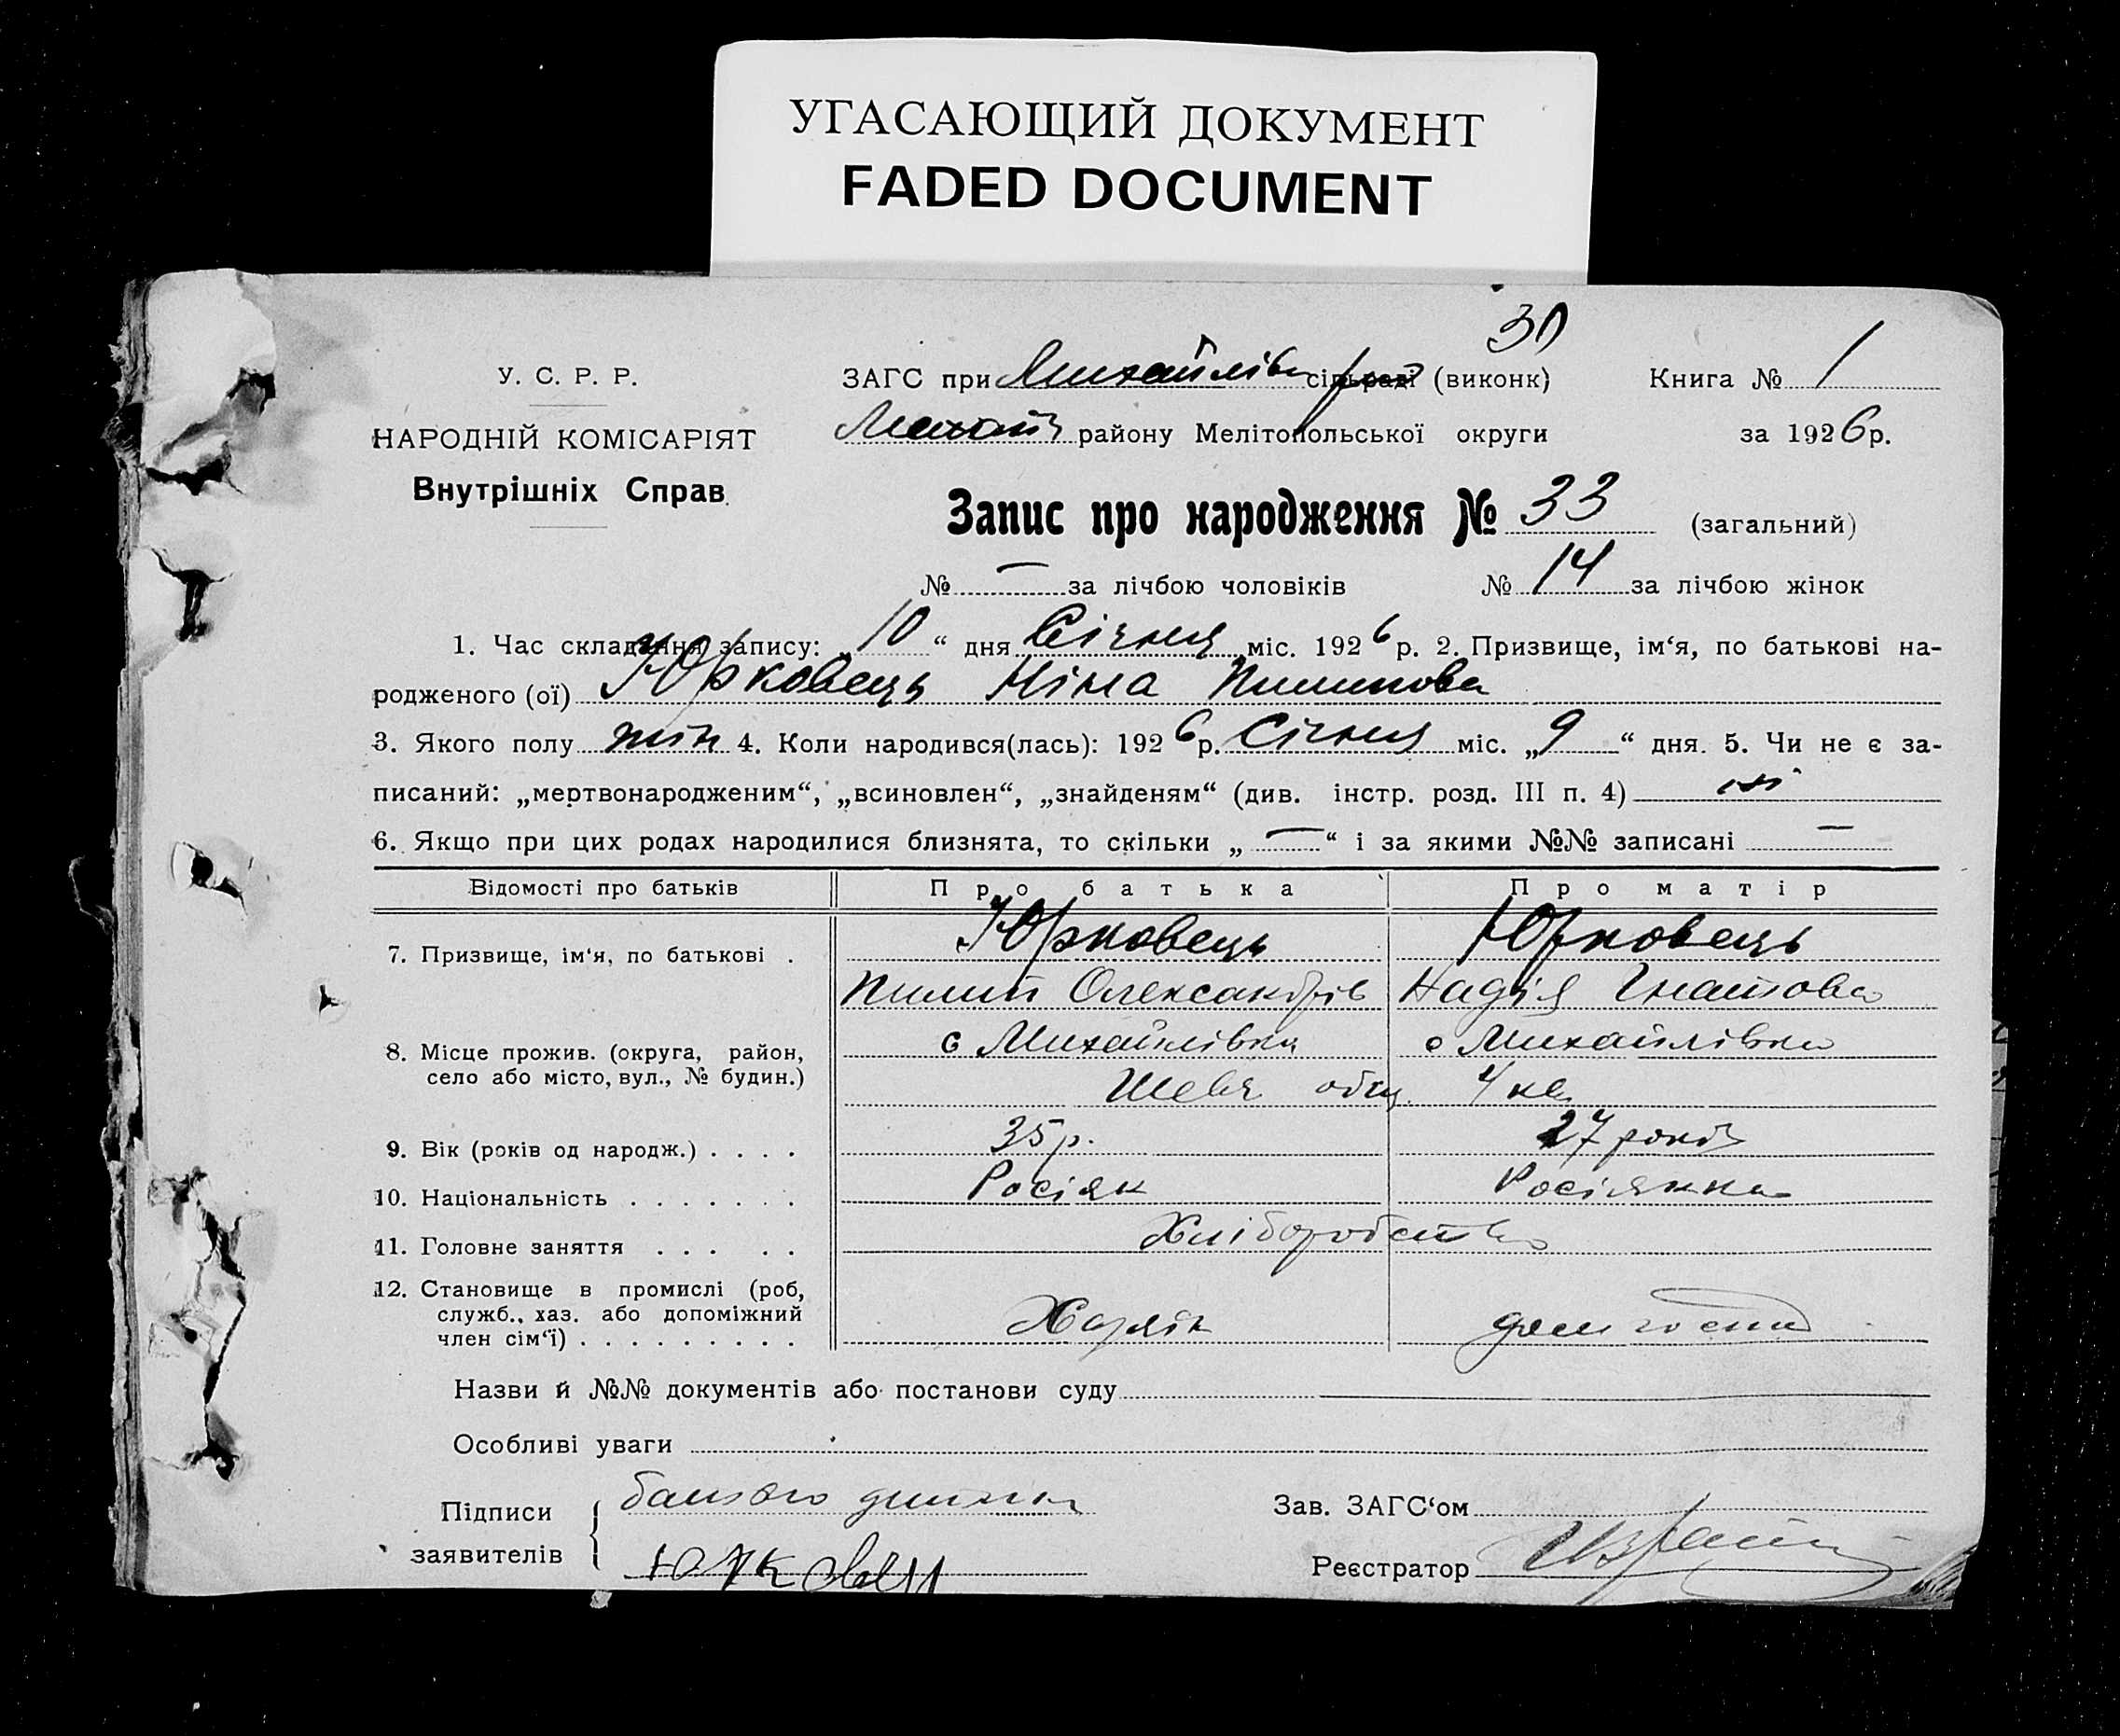 УГАСАЮЩИЙ ДОКУМЕНТ
FADED DOCUMENT
30
У. С. Р. Р.
НАРОДНІЙ КОМІСАРІЯТ
Внутрішніх Справ.
ЗАГС при Михайлів сільраді (виконк)
Михайл району Мелітопольської округи
Книга № 1
за 1926 р.
Запис про народження № 33 (загальний)
№ — за лічбою чоловіків № 14 за лічбою жінок
1. Час складання запису: „10“ дня Січня міс. 1926 р. 2. Призвище, ім‘я, по батькові на-
родженого (ої) Юрковець Ніна Пилипова
3. Якого полу жін 4. Коли народився(лась): 1926 р. Січня міс. „9“ дня. 5. Чи не є за-
писаний: „мертвонародженим“, „всиновлен“, „знайденям“ (див. інстр. розд. III п. 4) ні
6. Якщо при цих родах народилися близнята, то скільки „—“ і за якими №№ записані —
Відомості про батьків Про батька Про матір
7. Призвище, ім‘я, по батькові . Юрковець Юрковець
Пилип Олександрів Надія Гнатова
8. Місце прожив. (округа, район, село або місто, вул., № будин.) с Михайлівка с Михайлівка
Шевч общ. 4 кв
9. Вік (років од народж.) . . . . 35 р. 27 років
10. Національність . . . . . . . Росіяк Росіянка
11. Головне заняття . . . . . Хліборобство
12. Становище в промислі (роб, служб., хаз. або допоміжний член сім‘ї) . . . . . . . . . Хазяїн
Назви й №№ документів або постанови суду
Особливі уваги
Підписи заявителів
батько дитини
Юрковец
Зав. ЗАГС‘ом
Реєстратор